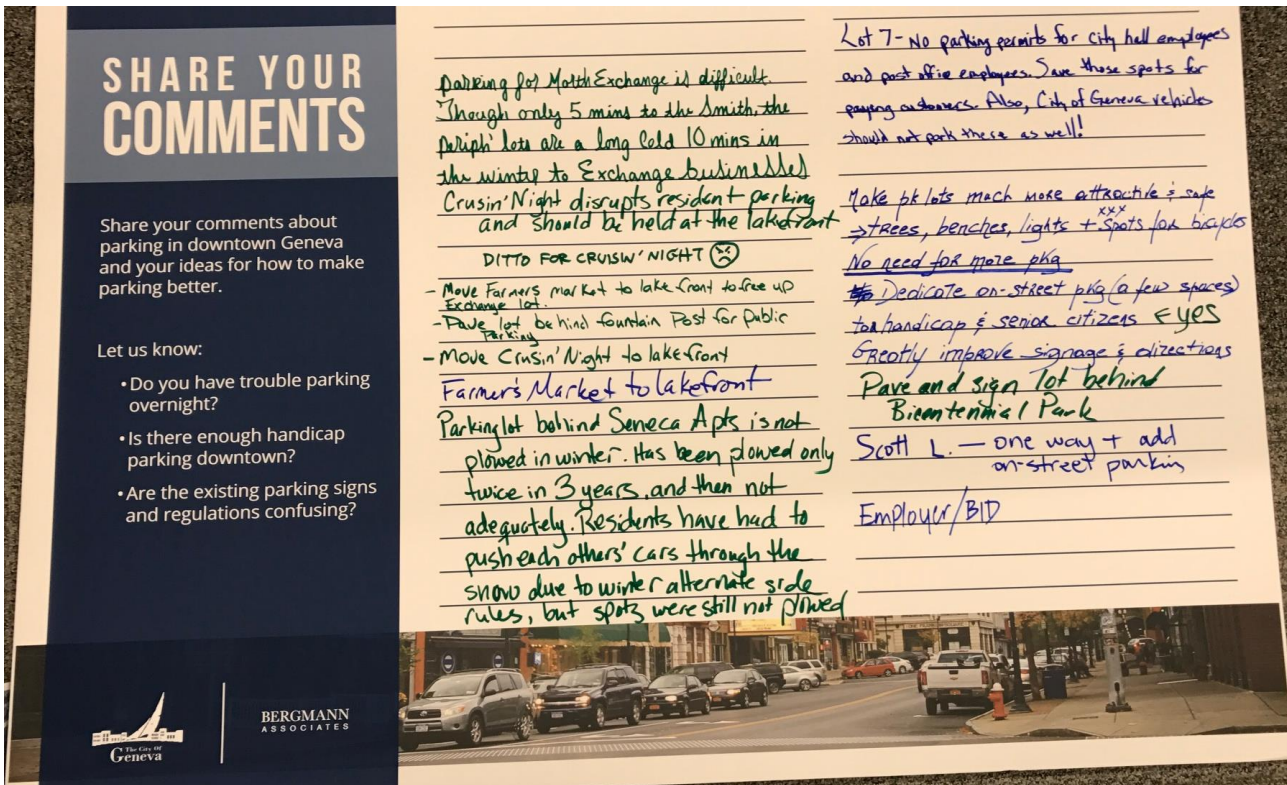 SHARE YOUR
COMMENTS
Share your comments about
parking in downtown Geneva
and your ideas for how to make
parking better.
Let us know:
• Do you have trouble parking
overnight?
• Is there enough handicap
parking downtown?
• Are the existing parking signs
and regulations confusing?
The City Of
Geneva
BERGMANN
ASSOCIATES
parking for Exchange is difficult.
Though only 5 mins to the Smith, the
periph' lots are a long cold 10 mins in
the winter to Exchange businesses
Crusin' Night disrupts resident parking
and should be held at the lakefront
DITTO FOR CRUISIN' NIGHT
- Move Farmers market to lake front to free up
Exchange lot.
- Pave lot behind fountain Post for Public
Parking
- Move Crusin' Night to lakefront
Farmer's Market to lakefront
Parking lot behind Seneca Apts is not
plowed in winter. Has been plowed only
twice in 3 years, and then not
adequately. Residents have had to
push each others' cars through the
snow due to winter alternate side
rules, but spots were still not plowed
Lot 7 - No parking permits for city hall employees
and post office employees. Save those spots for
paying customers. Also, City of Geneva vehicles
should not park there as well!
Make pk lots much more attractive & safe
→ trees, benches, lights + spots for bicycles
xxx
No need for more pkg
Dedicate on-street pkg (a few spaces)
for handicap & senior citizens ← yes
Greatly improve signage & directions
Pave and sign lot behind
Bicentennial Park
Scott L. — one way + add
on-street parking
Employer/BID